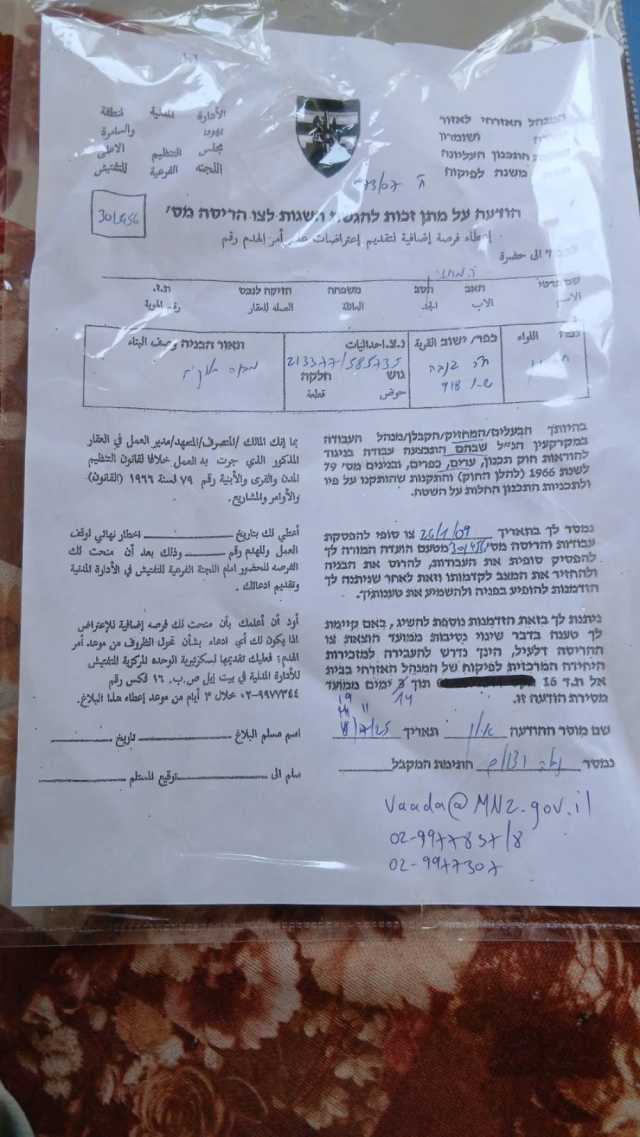 المنهل האזרחי לאזור
ושומרון
התכנון העליונה
משנה לפיקוח
الأدارة المدنية لمنطقة
يهودا والسامرة
مجلس التنظيم الاعلى
اللجنة الفرعية للتفتيش
הודעה על מתן זכות להגשת השגות לצו הריסה מס'
إعطاء فرصة إضافية لتقديم إعتراضات أمر الهدم رقم
الى حضرة
שם פרטי האב הסב משפחה חזיקה לנכס ת.ז.
الاسم الاب الجد العائلة الصله للعقار رقم الهوية
اللواء
כפר/ישוב القرية
נ.צ. احداثيات
גוש חלקה
حوض قطعة
תאור הבניה وصف البناء
213377/585735
918
בהיותך הבעלים/המחזיק/הקבלן/מנהל העבודה
במקרקעין הנ"ל שבהם התבצעה עבודה בניגוד
להוראות חוק תכנון, ערים, כפרים, ובנינים מס' 79
לשנת 1966 (להלן החוק) והתקנות שהותקנו על פיו
ולתכניות התכנון החלות על השטח.
بما إنك المالك /المتصرف/المتعهد/مدير العمل في العقار
المذكور الذي جرت به العمل خلافا لقانون التنظيم
المدن والقرى والأبنية رقم ٧٩ لسنة ١٩٦٦ (القانون)
والأوامر والمشاريع.
נמסר לך בתאריך 26/1/09 צו סופי להפסקת
עבודות והריסה מס' מטעם הועדה המורה לך
להפסיק סופית את העבודות, להרוס את הבניה
ולהחזיר את המצב לקדמותו וזאת לאחר שניתנה לך
הזדמנות להופיע בפניה ולהשמיע את טענותיך.
أعطي لك بتاريخ اخطار نهائي لوقف
العمل وللهدم رقم وذلك بعد أن منحت لك
الفرصه للحضور امام اللجنة الفرعية للتفتيش في الأدارة المدنية
وتقديم ادعائك.
ניתנת לך בזאת הזדמנות נוספת להשיג, באם קיימת
לך טענה בדבר שינוי נסיבות ממועד הוצאת צו
ההריסה דלעיל, הינך נדרש להעבירה למזכירות
היחידה המרכזית לפיקוח של המנהל האזרחי בבית
אל ת.ד 16 תוך ימים ממועד
מסירת הודעה זו.
14
أود أن أعلمك بأن منحت لك فرصه إضافية للإعتراض
اذا يكون لك أي ادعاء بشأن تحول الظروف من موعد أمر
الهدم؛ فعليك تقديمها لسكرتيرية الوحده المركزية للتفتيش
للأدارة المدنية في بيت إيل ص.ب. ١٦ فكس رقم
٠٢-٩٩٧٧٣٤٤ خلال ٣ أيام من موعد إعطاء هذا البلاغ.
שם מוסר ההודעה תאריך
اسم مسلم البلاغ تاريخ
נמסר חתימת המקבל
سلم الى توقيع المستلم
vaada@MNZ.gov.il
02-9977857/8
02-9977307